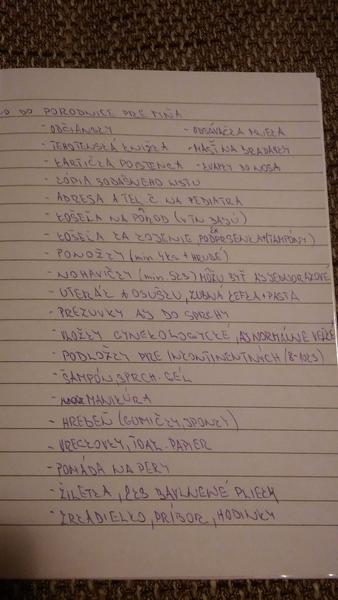 O DO PORODNICE PRE MŇA
- OBČIANSKY - ODSÁVAČKA MLIEKA
- TEHOTENSKÁ KNIŽKA - MASŤ NA BRADAVKY
- KARTIČKA POISTENCA - KVAPKY DO NOSA
- KÓPIA SOBÁŠNEHO LISTU
- ADRESA A TEL. Č NA PEDIATRA
- KOŠEĽA NA PÔROD
- KOŠEĽA NA KOJENIE PODPRSENKA + TAMPÓNY)
- PONOŽKY (min 4ks + HRUBÉ)
- NOHAVIČKY (min 5KS) MÔŽU BYŤ AJ JEDNORÁZOVÉ
- UTERÁK + OSUŠKU, ZUBNÁ KEFKA + PASTA
- PREZUVKY AJ DO SPRCHY
- VLOŽKY GYNEKOLOGYCKÉ, AJ NORMÁLNE
- PODLOŽKY PRE INKONTINENTNÝCH
- ŠAMPÓN, SPRCH. GÉL
- MANIKÚRA
- HREBEŇ (GUMIČKY, SPONKY)
- VRECKOVKY, TOAL. PAPIER
- POMÁDA NA PERY
- ŽILETKA, BAVLNENÉ PLIENKY
- ZRKADIELKO, PRÍBOR, HODINKY